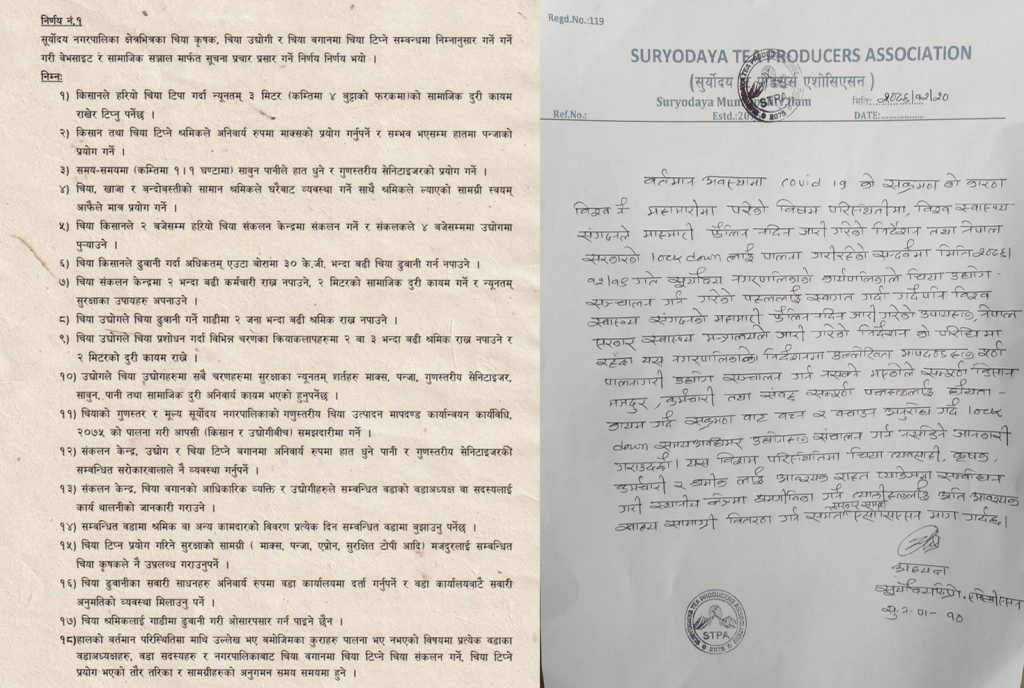 निर्णय नं.१
सूर्योदय नगरपालिका क्षेत्रभित्रका चिया कृषक, चिया उद्योगी र चिया बगानमा चिया टिप्ने सम्बन्धमा निम्नानुसार गर्ने गर्ने
गरी वेभसाइट र सामाजिक सञ्जाल मार्फत सूचना प्रचार प्रसार गर्ने निर्णय निर्णय भयो ।
निम्नः
१) किसानले हरियो चिया टिपा गर्दा न्यूनतम् ३ मिटर (कम्तिमा ४ बुट्टाको फरकमा)को सामाजिक दुरी कायम
राखेर टिप्नु पर्नेछ ।
२) किसान तथा चिया टिप्ने श्रमिकले अनिवार्य रुपमा माक्सको प्रयोग गर्नुपर्ने र सम्भव भएसम्म हातमा पन्जाको
प्रयोग गर्ने ।
३) समय-समयमा (कम्तिमा १।१ घण्टामा) साबुन पानीले हात धुने र गुणस्तरीय सेनिटाइजरको प्रयोग गर्ने ।
४) चिया, खाजा र बन्दोबस्तीको सामान श्रमिकले घरैबाट व्यवस्था गर्ने साथै श्रमिकले ल्याएको सामग्री स्वयम्
आफैले मात्र प्रयोग गर्ने ।
५) चिया किसानले २ बजेसम्म हरियो चिया संकलन केन्द्रमा संकलन गर्ने र संकलकले ४ बजेसम्ममा उद्योगमा
पुऱ्याउने ।
६) चिया किसानले ढुवानी गर्दा अधिकतम् एउटा बोरामा ३० के.जी. भन्दा बढी चिया ढुवानी गर्न नपाउने ।
७) चिया संकलन केन्द्रमा २ भन्दा बढी कर्मचारी राख्न नपाउने, २ मिटरको सामाजिक दुरी कायम गर्ने र न्यूनतम्
सुरक्षाका उपायहरु अपनाउने ।
८) चिया उद्योगले चिया ढुवानी गर्ने गाडीमा २ जना भन्दा बढी श्रमिक राख्न नपाउने ।
९) चिया उद्योगले चिया प्रशोधन गर्दा विभिन्न चरणका क्रियाकलापहरुमा २ वा ३ भन्दा बढी श्रमिक राख्न नपाउने र
२ मिटरको दुरी कायम राख्ने ।
१०) उद्योगले चिया उद्योगहरुमा सबै चरणहरुमा सुरक्षाका न्यूनतम् शर्तहरु माक्स, पन्जा, गुणस्तरीय सेनिटाइजर,
साबुन, पानी तथा सामाजिक दुरी अनिवार्य कायम भएको हुनुपर्नेछ ।
११) चियाको गुणस्तर र मूल्य सूर्योदय नगरपालिकाको गुणुस्तरीय चिया उत्पादन मापदण्ड कार्यान्वयन कार्यविधि,
२०७५ को पालना गरी आपसी (किसान र उद्योगीबीच) समझदारीमा गर्ने ।
१२) संकलन केन्द्र, उद्योग र चिया टिप्ने बगानमा अनिवार्य रुपमा हात धुने पानी र गुणस्तरीय सेनिटाइजरकी
सम्बन्धित सरोकारवालाले नै व्यवस्था गर्नुपर्ने ।
१३) संकलन केन्द्र, चिया वगानको आधिकारीक व्यक्ति र उद्योगीहरुले सम्बन्धित वडाको वडाअध्यक्ष वा सदस्यलाई
कार्य थालनीको जानकारी गराउने ।
१४) सम्बन्धित वडामा श्रमिक वा अन्य कामदारको विवरण प्रत्येक दिन सम्बन्धित वडामा बुझाउनु पर्नेछ ।
१५) चिया टिप्न प्रयोग गरिने सुरक्षाको सामाग्री ( माक्स, पन्जा, एप्रोन, सुरक्षित टोपी आदि) मजदुरलाई सम्बन्धित
चिया कृषकले नै उप्रलब्ध गराउनुपर्ने ।
१६) चिया ढुवानीका सवारी साधनहरु अनिवार्य रुपमा वडा कार्यालयमा दर्ता गर्नुपर्ने र वडा कार्यालयबाटै सवारी
अनुमतिको व्यवस्था मिलाउनु पर्ने ।
१७) चिया श्रमिकलाई गाडीमा ढुवानी गरी ओसारपसार गर्न पाइने छैन ।
१८)हालको वर्तमान परिस्थितिसा माथि उल्लेख भए बमोजिमका कुराहरु पालना भए नभएको विषयमा प्रत्येक वडाका
वडाअध्यक्षहरु, वडा सदस्यहरु र नगरपालिकाबाट चिया बगानमा चिया टिप्ने चिया संकलन गर्ने, चिया टिप्ने
प्रयोग भएको तौर तरिका र सामग्रीहरुको अनुगमन समय समयमा हुने ।
Regd.No.:119
SURYODAYA TEA PRODUCERS ASSOCIATION
(सुर्योदय एशोसिएसन )
Suryodaya Mun Ilam
मिति: २०७६/१२/२०
Ref.No.:
Estd.:20
DATE:
STPA
2075
वर्तमान अवस्थामा covid 19 को सक्रमण को कारण
विश्व नै महामारीमा परेको विषम परिस्थितीमा, विश्व स्वास्थ्य
संगठनले माहामारी फैलिन नदिन जारी गरेको निर्देशन तथा नेपाल
सरकारको lock down लाई पालना गरीरहेको सन्दर्भमा मिति २०७६।
१२।१९ गते सूर्योदय नगरपालिकाको कार्यपालिकाले चिया उद्योग-
सञ्चालन गर्न गरेको पहललाई स्वागत गर्दा गर्दै पनि विश्व
स्वास्थ्य संगठनको महामारी फैलिन नदिन जारी गरेको उपायहरू, नेपाल
सरकार स्वास्थ्य मन्त्रालयले जारी गरेको निर्देशन को परिधि मा
रहेका यस नगरपालिकाको निर्देशनमा उल्लेखित मापदण्डहरू
पालनागरी उद्योग सञ्चालन गर्न नसक्ने किसान
मजदुर, कुर्मचारी तथा
कायम गर्दै सक्रमण बाट बच्न र बचाउन अनुरोध गर्दै lock
down उद्योगहरू संचालन गर्न नसकिने जानकारी
गराउदछौ। यस विषम परिस्थितिमा चिया व्यवसायी, कृषक,
कुर्मचारी र श्रमीक लाई आवश्यक राहत
गरी स्थानीय आवश्यक
स्वास्थ्य सामाग्री वितरण गर्न माग गर्दछ।
अध्यक्ष
सु.न.पा-१०
TEA PRODUCERS ASSOCIATION
STPA
2075